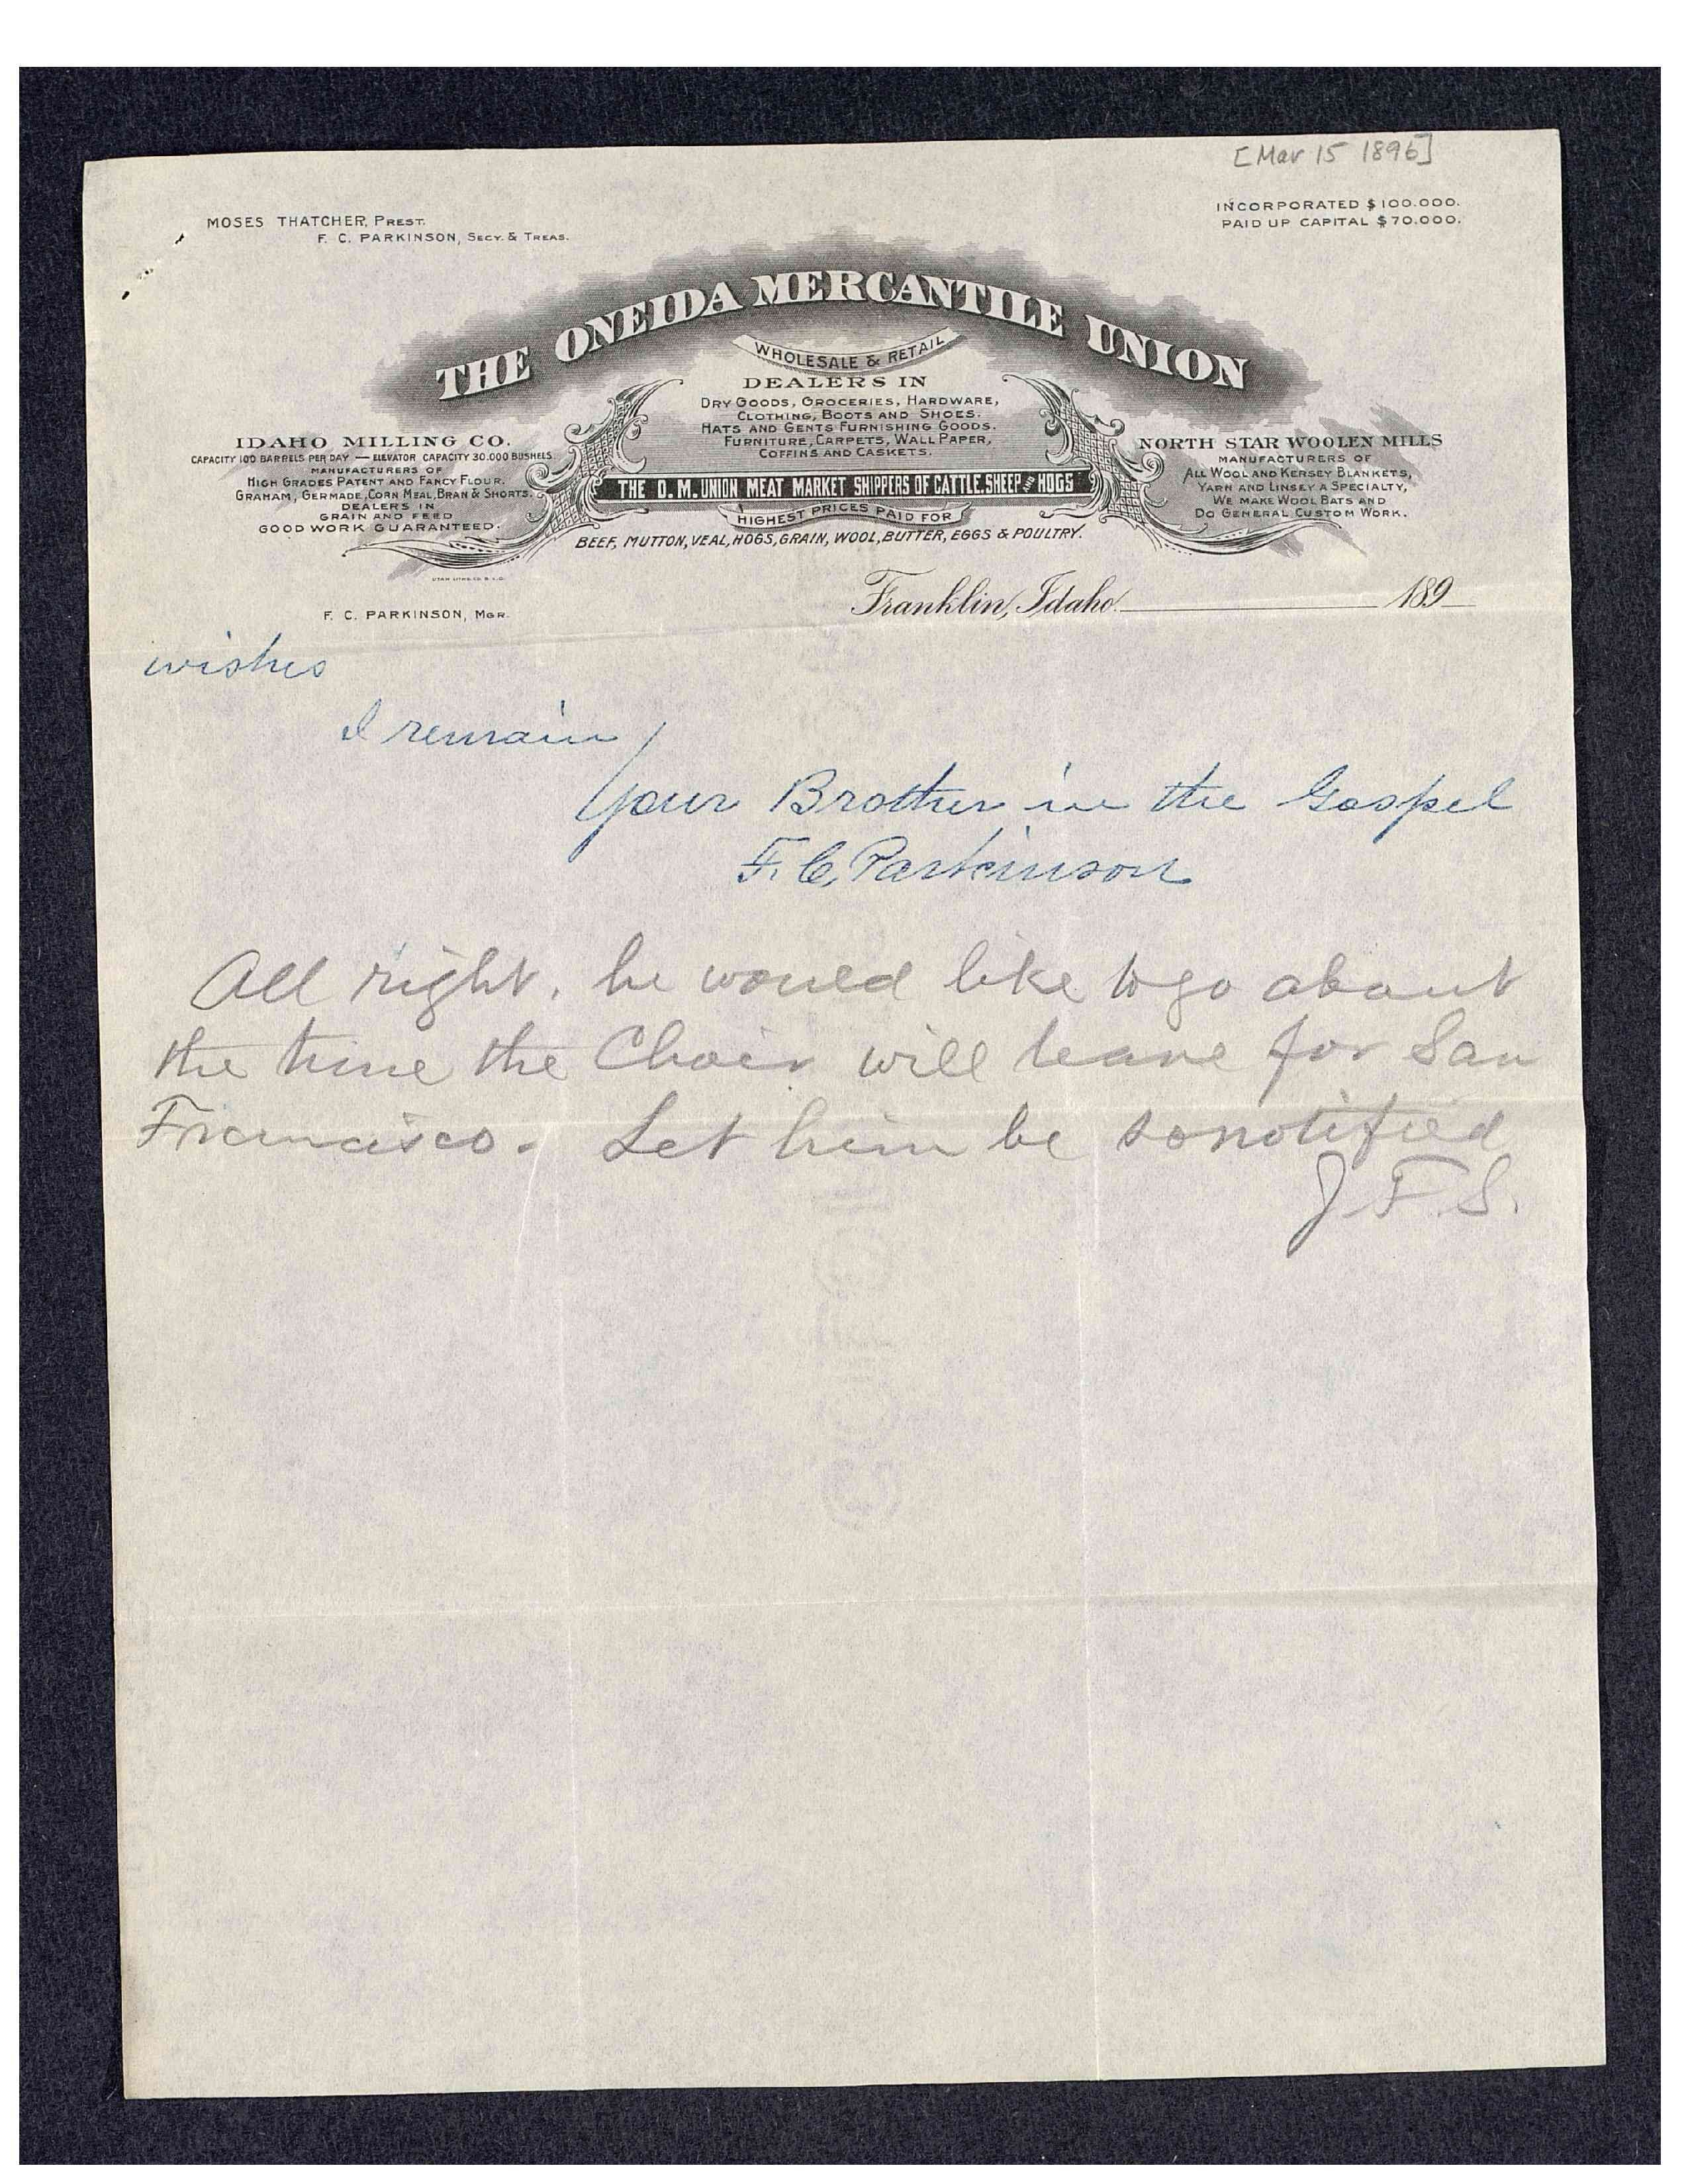 [Mar 15 1896]
MOSES THATCHER, PREST.
F. C. PARKINSON, SECY. & TREAS.
INCORPORATED $100.000.
PAID UP CAPITAL $70.000.
THE ONEIDA MERCANTILE UNION
WHOLESALE & RETAIL
DEALERS IN
DRY GOODS, GROCERIES, HARDWARE,
CLOTHING, BOOTS AND SHOES.
HATS AND GENTS FURNISHING GOODS.
FURNITURE, CARPETS, WALL PAPER,
COFFINS AND CASKETS.
IDAHO MILLING CO.
CAPACITY 100 BARRELS PER DAY — ELEVATOR CAPACITY 30.000 BUSHELS
MANUFACTURERS OF
HIGH GRADES PATENT AND FANCY FLOUR.
GRAHAM, GERMADE, CORN MEAL, BRAN & SHORTS.
DEALERS IN
GRAIN AND FEED
GOOD WORK GUARANTEED.
NORTH STAR WOOLEN MILLS
MANUFACTURERS OF
ALL WOOL AND KERSEY BLANKETS,
YARN AND LINSEY A SPECIALTY,
WE MAKE WOOL BATS AND
DO GENERAL CUSTOM WORK.
THE O. M. UNION MEAT MARKET SHIPPERS OF CATTLE. SHEEP AND HOGS
HIGHEST PRICES PAID FOR
BEEF, MUTTON, VEAL, HOGS, GRAIN, WOOL, BUTTER, EGGS & POULTRY.
F. C. PARKINSON, MGR.
Franklin, Idaho. 189
wishes
I remain
Your Brother in the Gospel
F. C. Parkinson
All right. he would like to go about
the time the Choir will leave for San
Francisco. Let him be so notified
J. F. S.